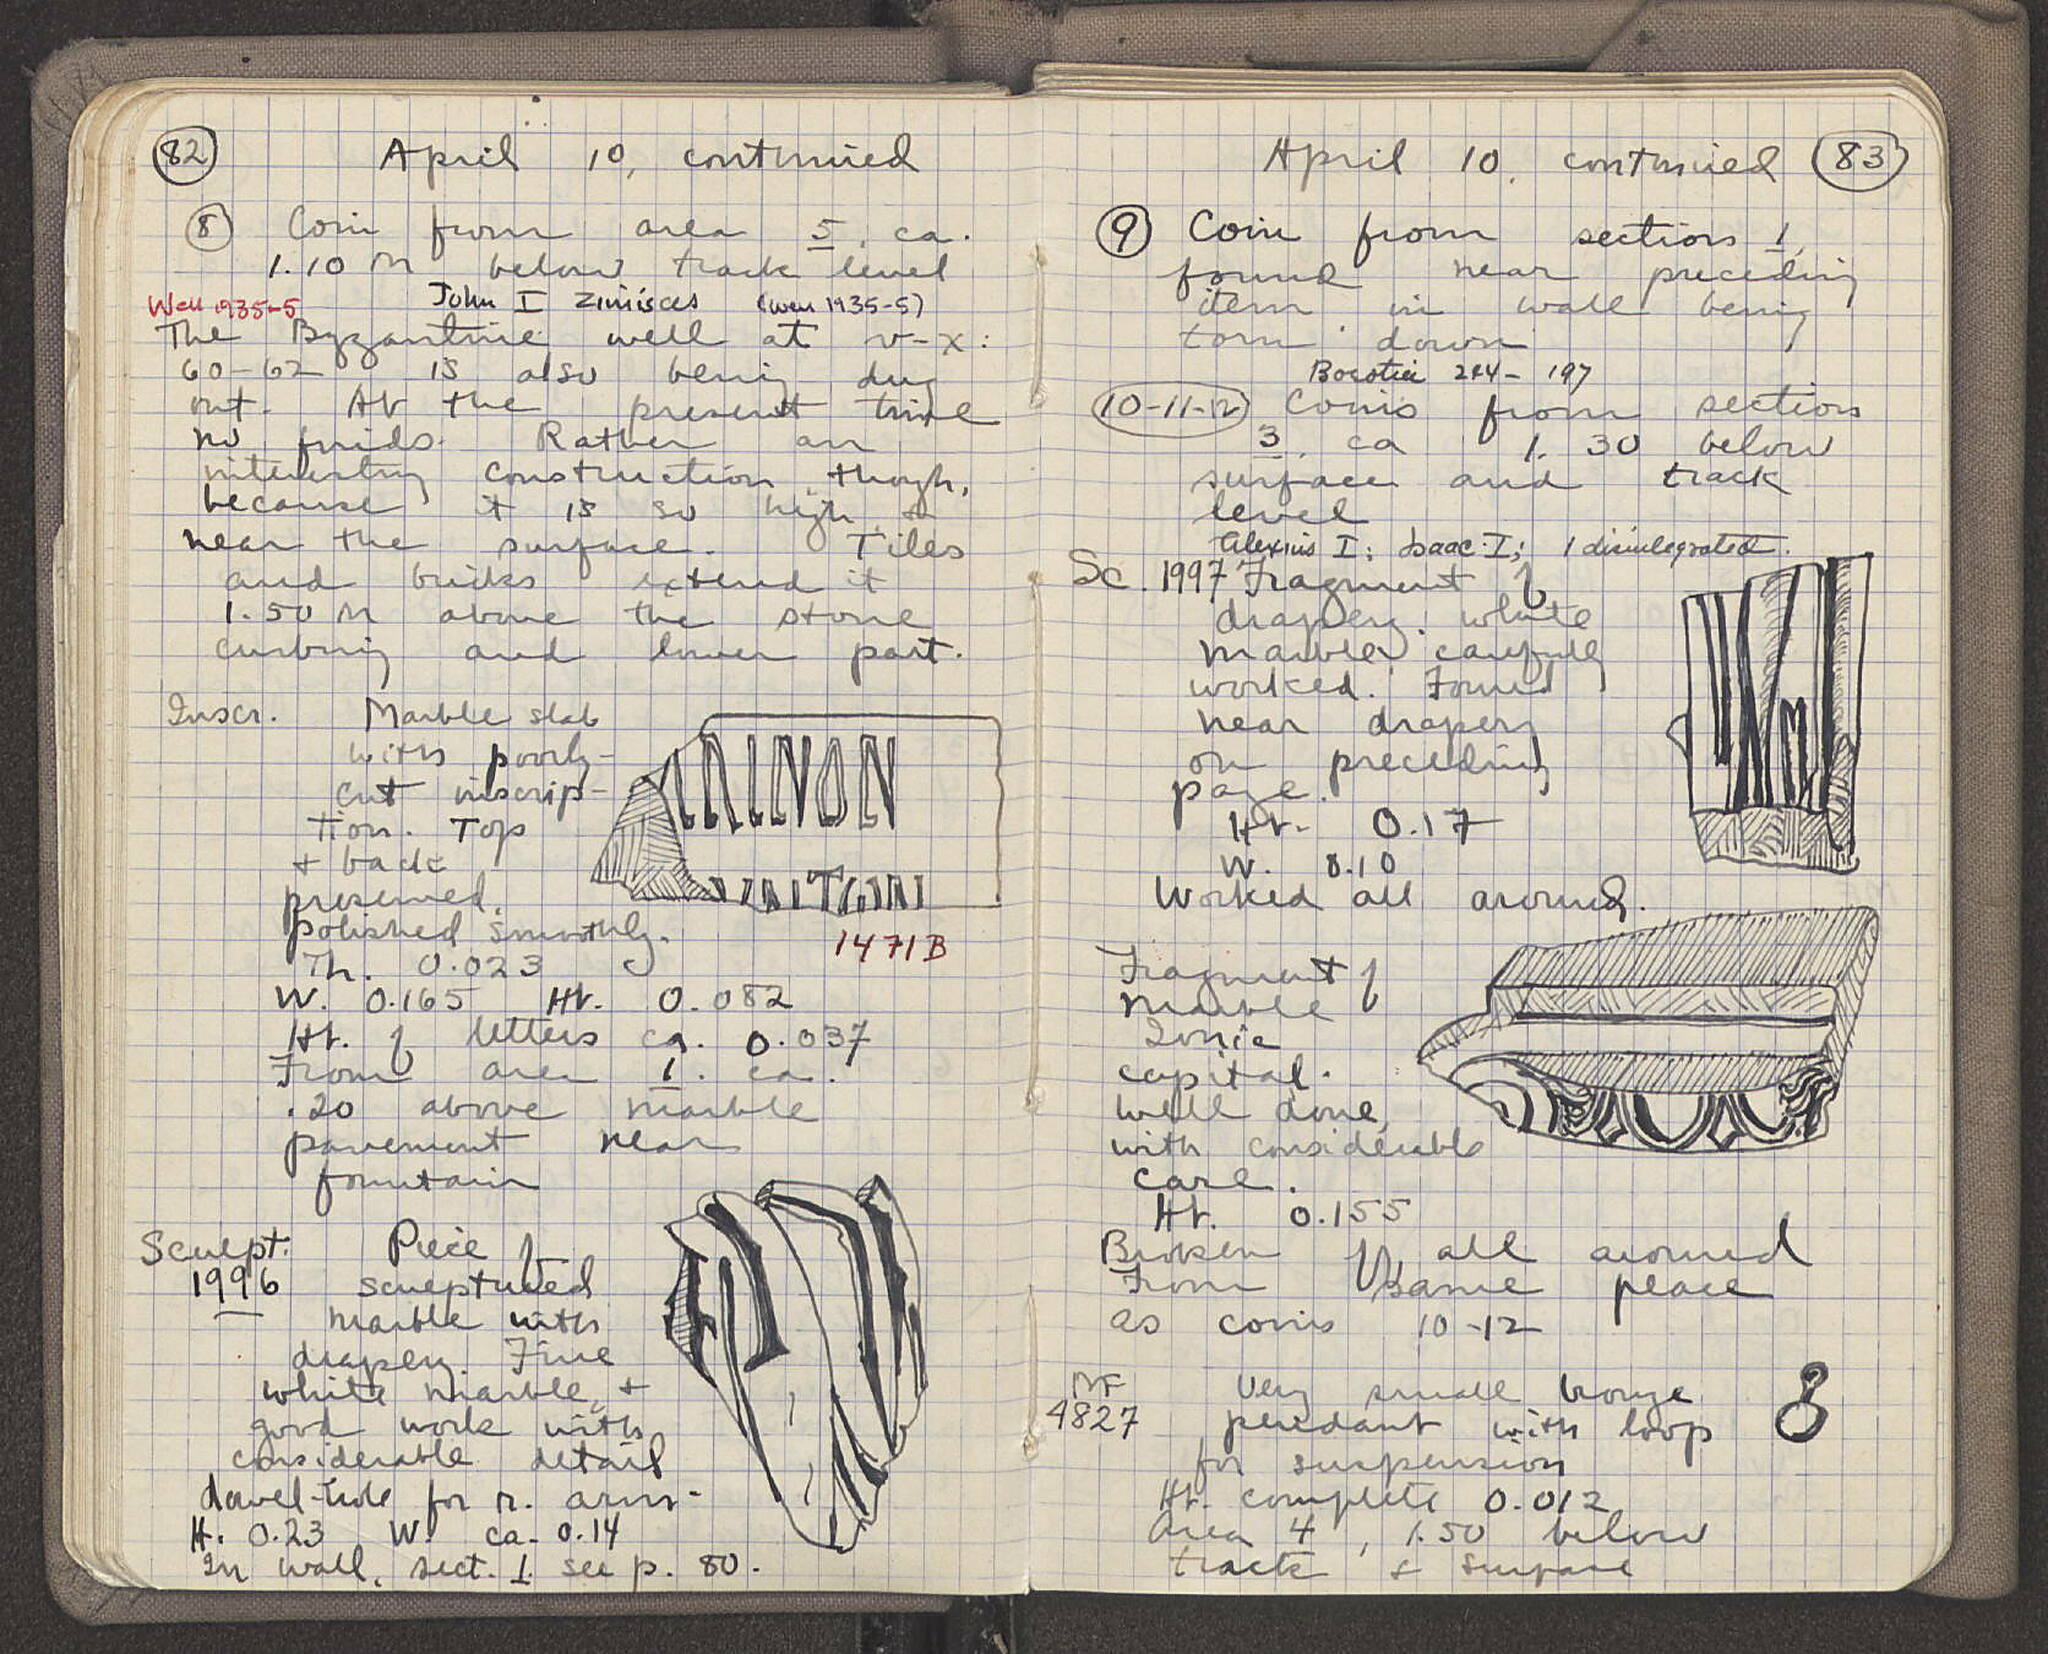 82
April 10, continued
8 Coin from area 5, ca.
1.10 M below track level
Well 1935-5 John I Zimisces (well 1935-5)
The Byzantine well at v-x:
60-62 is also being dug
out. At the present time
no finds. Rather an
interesting construction, though,
because it is so high &
near the surface. Tiles
and bricks extend it
1.50 M above the stone
curbing and lower part.
Inscr. Marble slab
with poorly-
cut inscrip-
tion. Top
& back
preserved.
polished smoothly.
ΙΝΟΝ
1471B
Th. 0.023
W. 0.165 Ht. 0.082
Ht. of letters ca. 0.037
From area 1. ca.
.20 above marble
pavement near
fountain
Sculpt. Piece of
1996 sculptured
marble with
drapery. Fine
white marble, &
good work with
considerable detail
dowel-hole for r. arm-
H. 0.23 W. ca. 0.14
In wall, sect. 1. see p. 80.
April 10, continued 83
9 Coin from section 1,
found near preceding
item in wall being
torn down
Boeotia 244-197
10-11-12 Coins from section
3, ca 1.30 below
surface and track
level
Alexius I; Isaac I; 1 disintegrated.
Sc. 1997 Fragment of
drapery. white
marble carefully
worked. Found
near drapery
on preceding
page.
Ht. 0.17
W. 0.10
Worked all around.
Fragment of
marble
Ionic
capital.
well done,
with considerable
care.
Ht. 0.155
Broken off all around
From same place
as coins 10-12
MF Very small bronze
4827 pendant with loop
for suspension
Ht. complete 0.012
Area 4, 1.50 below
track & surface